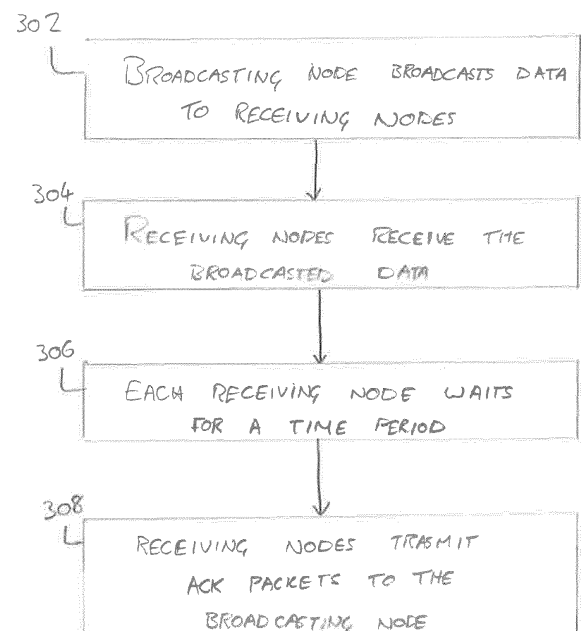 302
BROADCASTING NODE BROADCASTS DATA
TO RECEIVING NODES
304
RECEIVING NODES RECEIVE THE
BROADCASTED DATA
306
EACH RECEIVING NODE WAITS
FOR A TIME PERIOD
308
RECEIVING NODES TRASMIT
ACK PACKETS TO THE
BROADCASTING NODE